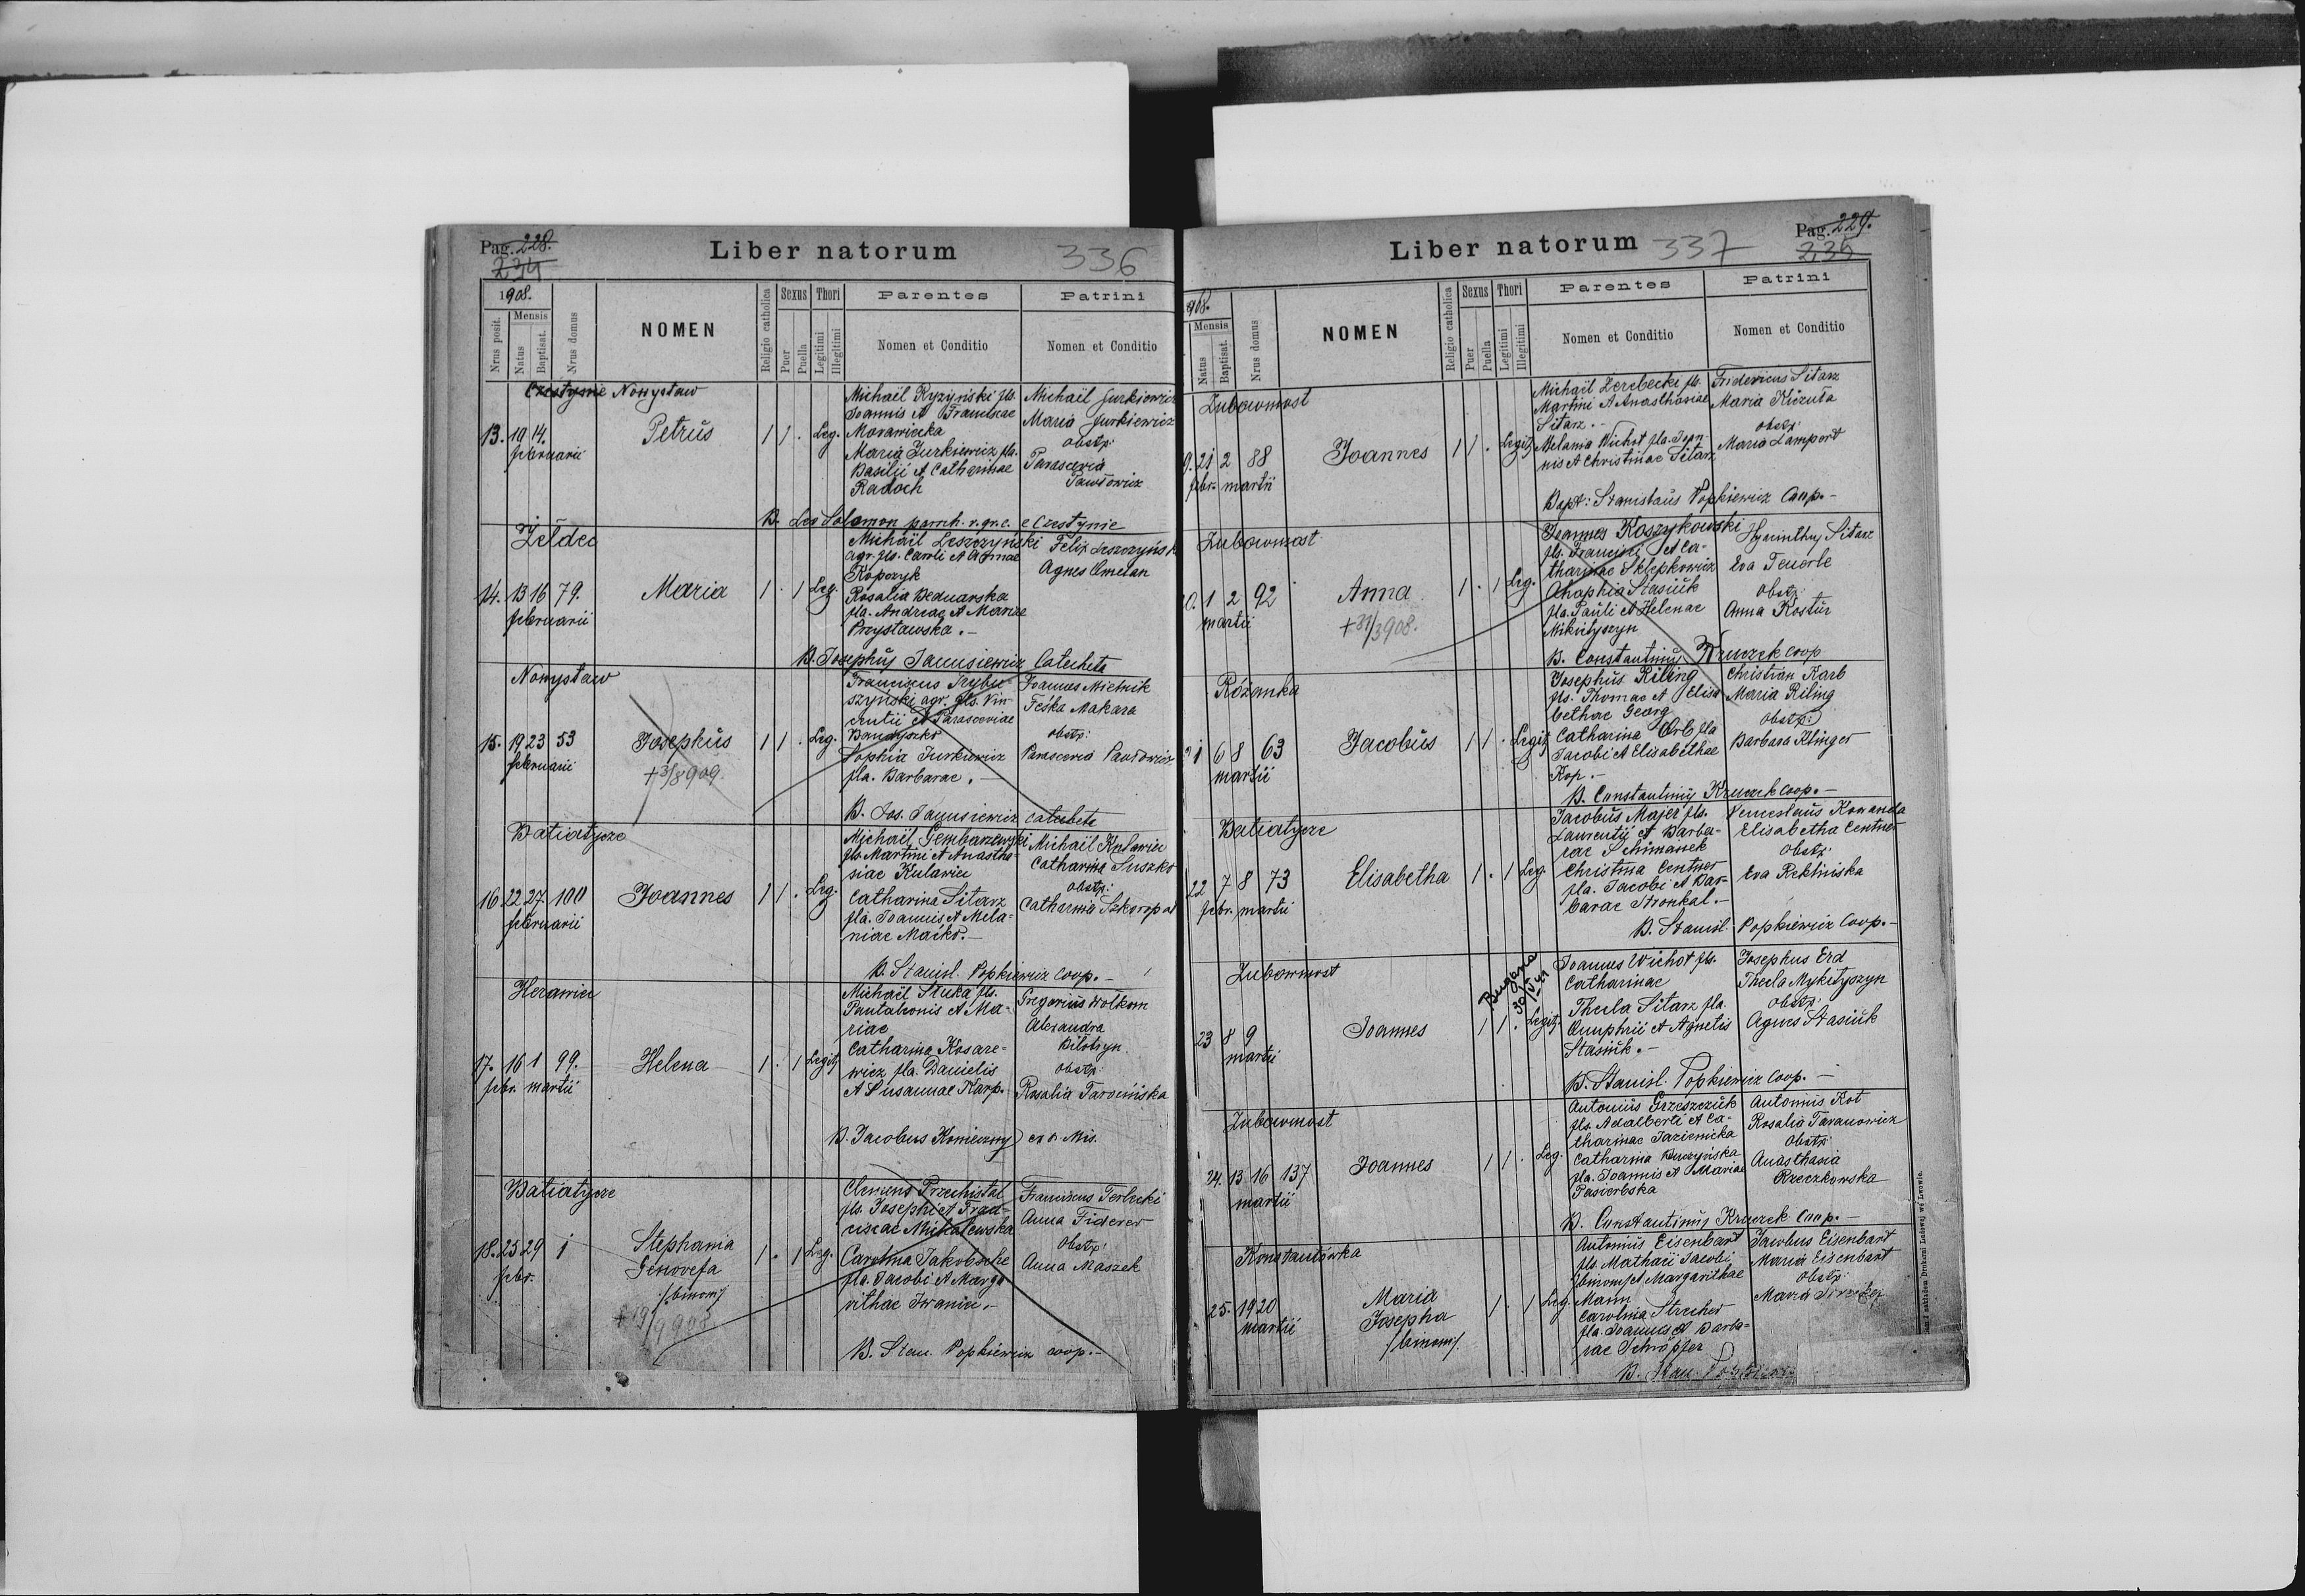 Pag. 228.
234
Liber natorum
336
1908.
Nrus posit.
Mensis
Natus
Baptisat.
Nrus domus
NOMEN
Religio catholica
Sexus
Puer
Puella
Thori
Legitimi
Illegitimi
Parentes
Nomen et Conditio
Patrini
Nomen et Conditio
Czestynie Nowystaw
13. 19 14. februarii
Petrus
1 1 . Leg.
Michaël Ryzyński fls.
Joannis et Franciscae
Morawiecka
Maria Jurkiewicz fla.
Basilii et Catharinae
Radoch
Michaël Jurkiewicz
Maria Jurkiewicz
obstz:
Parascevia
Pawłowicz
B. Leo Solomon paroch. r. gr. c. e Czestynie
Żełdec
14. 13 16 79. februarii
Maria
1 . 1 Leg.
Michaïl Leszczyński
agr. fls. Caroli et Agnae
Kopczyk
Rosalia Bednarska
fla. Andreae et Mariae
Przystawska.-
Felix Leszczyński
Agnes Omelan
B. Josephus Janusiewicz Catecheta
Nowystaw
15. 19 23 53 februarii
Josephus
+3/8 909.
1 1 . Leg.
Franciscus Trybu-
szyński agr. fls. Vin-
centii et Parasceviae
Bandyszko
Sophia Jurkiewicz
fla. Barbarae.-
Joannes Mielnik
Feśka Makara
obstz:
Parascevia Pawłowicz
B. Jos. Janusiewicz catecheta
Batiatycze
16. 22 27. 100 februarii
Joannes
1 1 . Leg.
Michaïl Gembarzewski
fls. Martini et Anastha-
siae Kulawiec
Catharina Sitarz
fla. Joannis et Mela-
niae Maiko.-
Michaïl Kulawiec
Catharina Suszko
obstz:
Catharina Szkoropad
B. Stanisl. Popkiewicz Coop.-
Kerawiec
17. 16 1 99. febr. martii
Helena
1 . 1 Legit
Michaël Stuka fls.
Pantaleonis et Ma-
riae
Catharina Kosare-
wicz fla. Danielis
et Susannae Karp.
Gregorius Wołkom
Alexandra
Biłobryn
obstz:
Rosalia Tarocińska
B. Jacobus Konieczny ex o. Mis.
Batiatycze
18. 25 29 1 febr.
Stephania
Genovefa
/binom/
+19/9 908.
1 . 1 Leg.
Clemens Przechistal
fls. Josephi et Fran-
ciscae Michalewska
Carolina Jakobsche
fla. Jacobi et Marga
rithae Iwaniec.-
Franciscus Terlecki
Anna Fiderer
Obstz:
Anna Maszek
B. Stan. Popkiewicz coop.-
Liber natorum
337
Pag. 229.
235
908.
Mensis
Natus
Baptisat.
Nrus domus
NOMEN
Religio catholica
Sexus
Puer
Puella
Thori
Legitimi
Illegitimi
Parentes
Nomen et Conditio
Patrini
Nomen et Conditio
Zubowmost
9. 21 2 88 febr. martii
Joannes
1 1 . Legit
Michaël Zerebecki fls.
Martini et Anasthasiae
Sitarz.-
Melania Wichot fla. Joan-
nis et Christinae Sitarz
Fridericus Sitarz
Maria Kiczuła
obstz:
Maria Lampart
Bapt: Stanislaus Popkiewicz Coop.-
Zubowmost
0. 1 2 92 martii
Anna
+31/3 908.
1 . 1 Leg.
Joannes Koszykowski
fls. Francisci et Ca-
tharinae Sklepkowicz
Ahaphia Stasiuk
fla. Pauli et Helenae
Mikityszyn
Hyacinthus Sitarz
Eva Teuerle
Obstz:
Anna Kostur
B. Constantinus Kruczek Coop
Różanka
21 6 8 63 martii
Jacobus
1 1 . Legit
Josephus Riling
fls. Thomae et Elisa
bethae Georg
Catharina Orb fla
Jacobi et Elisabethae
Kop.-
Christian Karb
Maria Riling
obstz:
Barbara Klinger
B. Constantinus Kruczek Coop.-
Batiatycze
22 7 8 73 febr. martii
Elisabetha
1 . 1 Leg.
Jacobus Majer fls.
Laurentii et Barba-
rae Schimanek
Christina Centner
fla. Jacobi et Bar-
barae Stronkal.-
Venceslaus Kowanda
Elisabetha Centner
obstz:
Eva Rektniska
B. Stanisl. Popkiewicz Coop.-
Zubowmost
23 8 9 martii
Joannes
1 1 . Legit.
30/V 41
Joannes Wichot fls.
Catharinae
Thecla Sitarz fla.
Onuphrii et Agnetis
Stasiuk.-
Josephus Erd
Thecla Mykityszyn
obstz:
Agnes Stasiuk
B. Stanisl. Popkiewicz Coop.-
Zubowmost
24. 13 16 137 martii
Joannes
1 1 . Leg.
Antonius Grzeszczuk
fls. Adalberti et Ca-
tharinae Jazienicka
Catharina Buczyńska
fla. Joannis et Mariae
Pasierbska
Antonius Kot
Rosalia Taranowicz
obstz:
Anasthasia
Rzeczkowska
B. Constantinus Kruczek Coop.-
Konstantówka
25. 19 20 martii
Maria
Josepha
/binom/.
1 . 1 Leg.
Antonius Eisenbart
fls. Mathaei Jacobi
/binom/ et Margarithae
Mann
Carolina Strecher
fla. Joannis et Barba-
rae Schröpfer
Jacobus Eisenbart
Maria Eisenbart
Obstz:
Maria
B. Stan. Popkiewicz
nakładem Drukarni Ludowej we Lwowie.